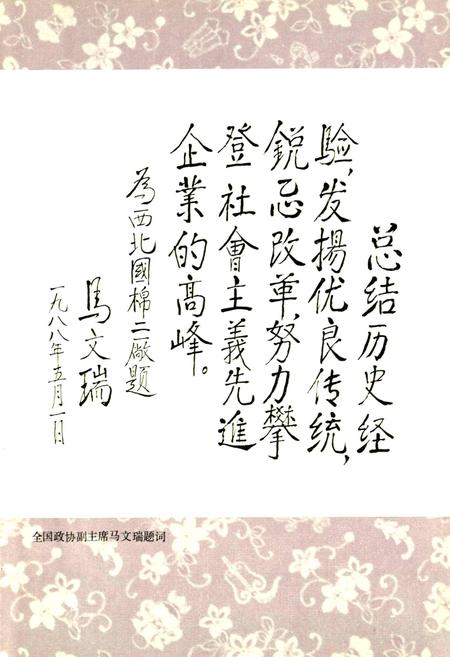 总结历史经
验，发揚优良传统，
銳忌改革，努力攀
登社會主義先進
企業的高峰。
為西北國棉二厰題
馬文瑞
一九八八年五月一日
全国政协副主席马文瑞题词